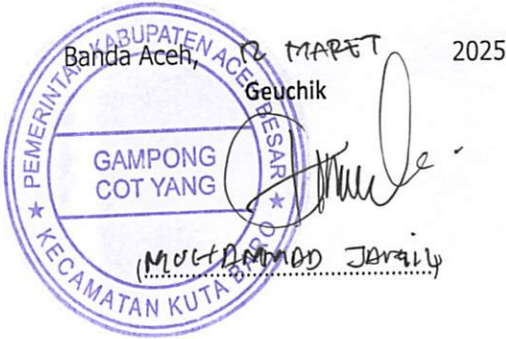 Banda Aceh, 12 MARET 2025
Geuchik
PEMERINTAH KABUPATEN ACEH BESAR
GAMPONG
COT YANG
KECAMATAN KUTA BARO
(MUHAMMAD